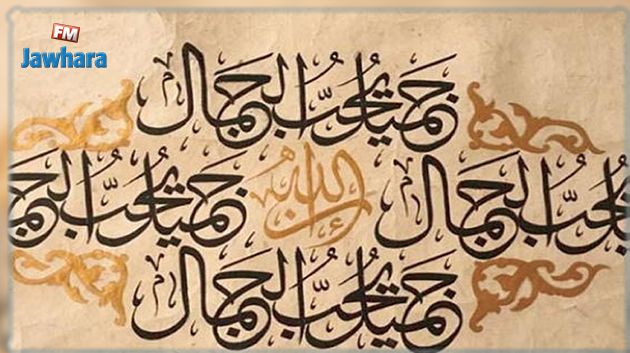 FM
Jawhara
جميل يحب الجمال
يحب الجمال إن الله جميل يحب الجما
جميل يحب الجمال